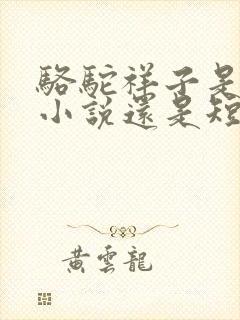 駱駝祥子是
小說還是短
黃雲龍